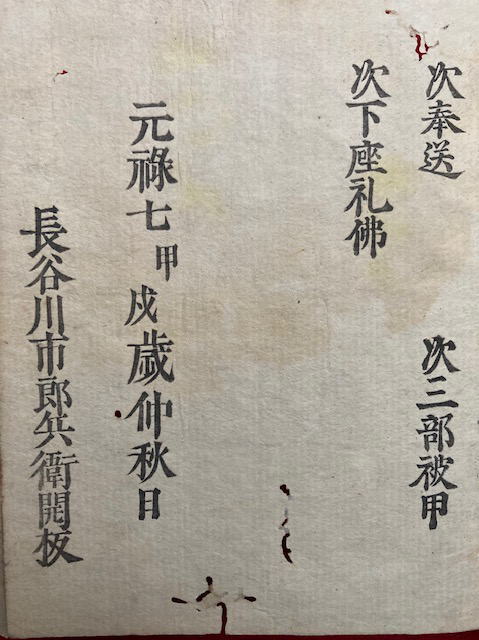 次奉送　次三部被甲
次下座礼佛
元祿七甲戌歳仲秋日
長谷川市郎兵衛開板